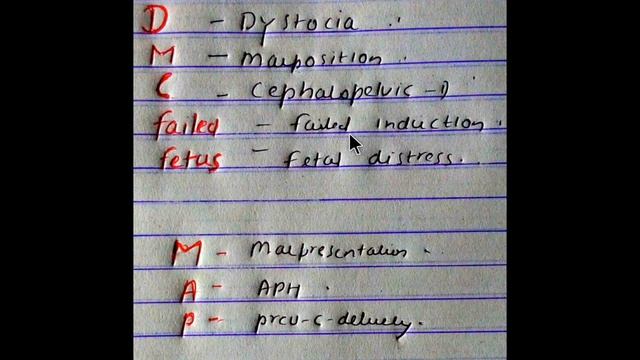 D - Dystocia
M - Malposition
C - Cephalopelvic - D
failed - failed induction.
fetus - fetal distress.
M - Malpresentation.
A - APH.
P - prev-c-delivery.